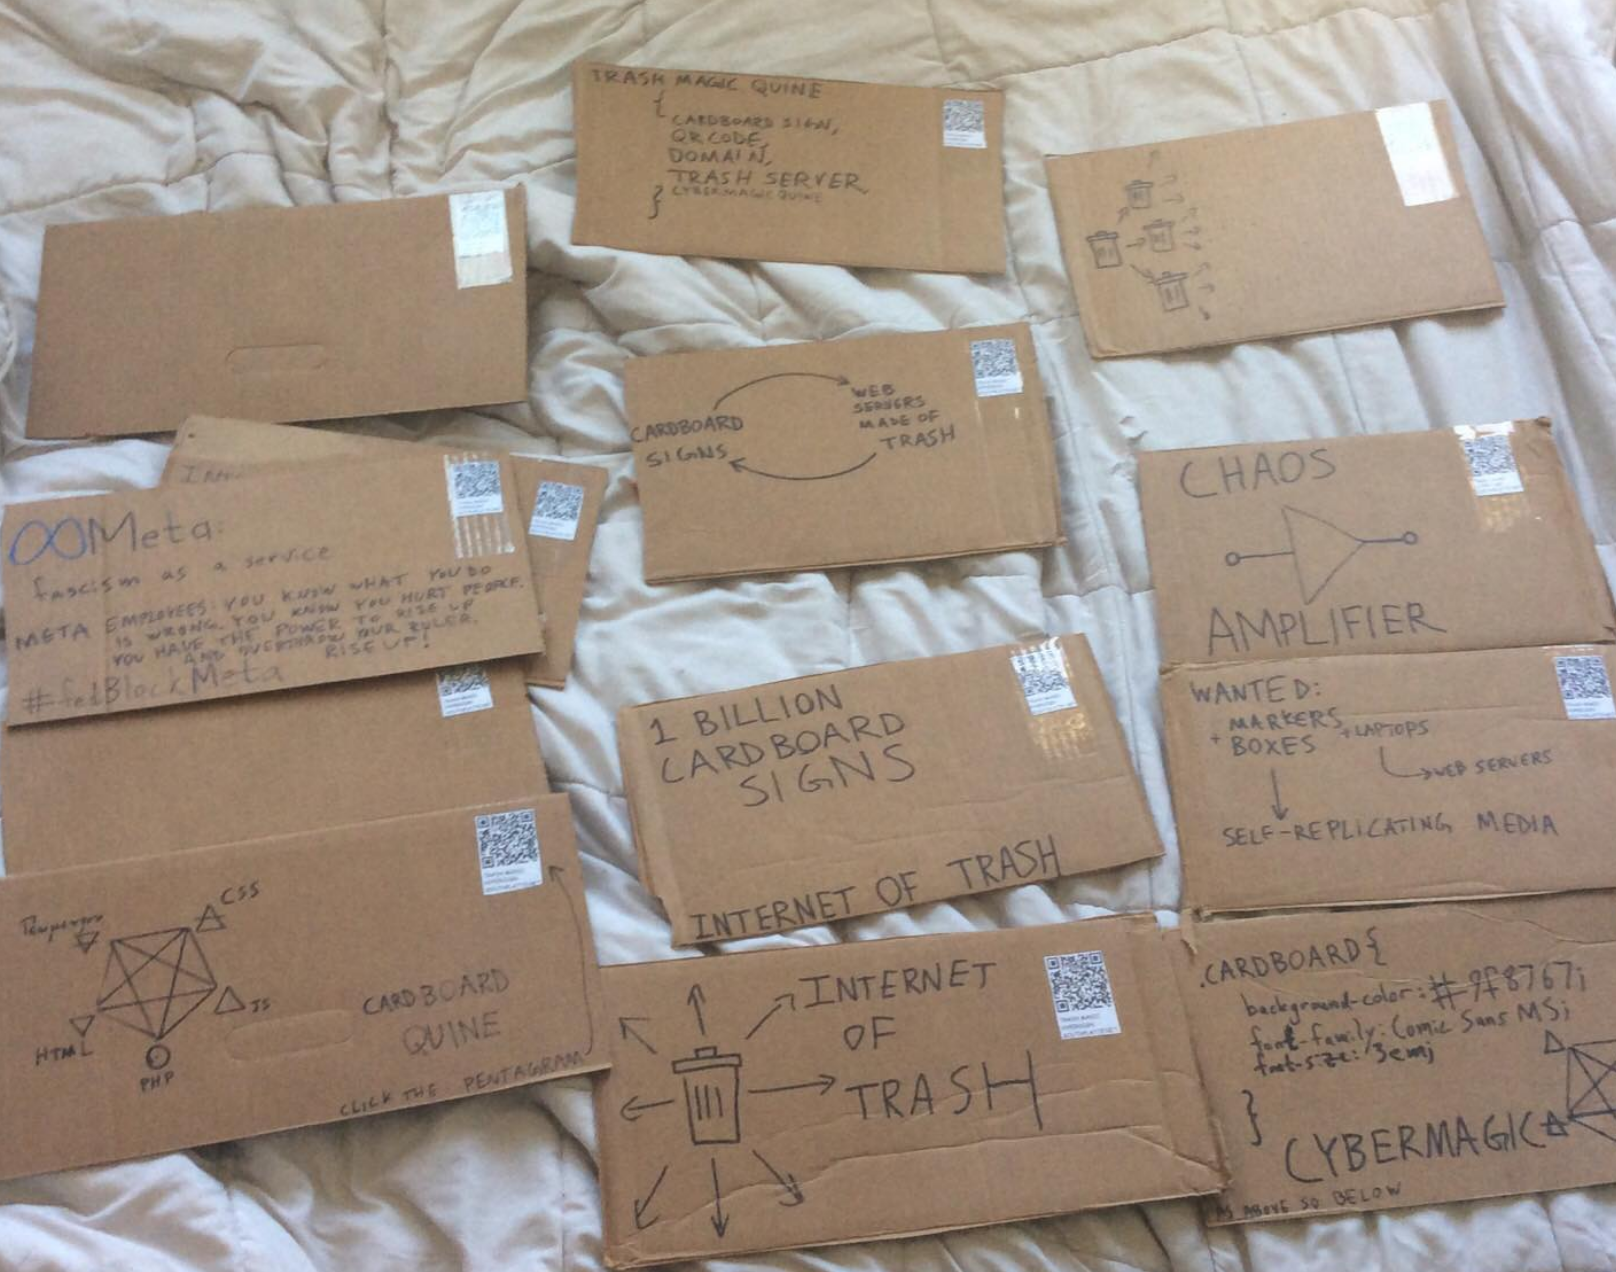 TRASH MAGIC QUINE
{
CARDBOARD SIGN,
QR CODE,
DOMAIN,
TRASH SERVER
CYBERMAGIC QUINE
}
CARDBOARD
SIGNS
WEB
SERVERS
MADE OF
TRASH
CHAOS
AMPLIFIER
∞Meta:
fascism as a service
META EMPLOYEES: YOU KNOW WHAT YOU DO
IS WRONG. YOU KNOW YOU HURT PEOPLE.
YOU HAVE THE POWER TO RISE UP
AND OVERTHROW YOUR RULER.
RISE UP!
#fediBlockMeta
1 BILLION
CARDBOARD
SIGNS
INTERNET OF TRASH
WANTED:
+ MARKERS
+ BOXES
+ LAPTOPS
WEB SERVERS
SELF-REPLICATING MEDIA
CSS
JS
HTML
PHP
CARDBOARD
QUINE
CLICK THE PENTAGRAM
INTERNET
OF
TRASH
.CARDBOARD{
background-color: #9f8767;
font-family: Comic Sans MS;
font-size: 3em;
}
CYBERMAGIC
AS ABOVE SO BELOW